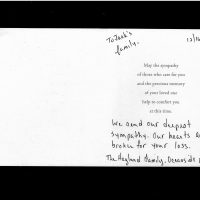 To Zack's
family.
May the sympathy
of those who care for you
and the precious memory
of your loved one
help to comfort you
at this time.
We send our deepest
sympathy. Our hearts
broken for your loss.
The Family,